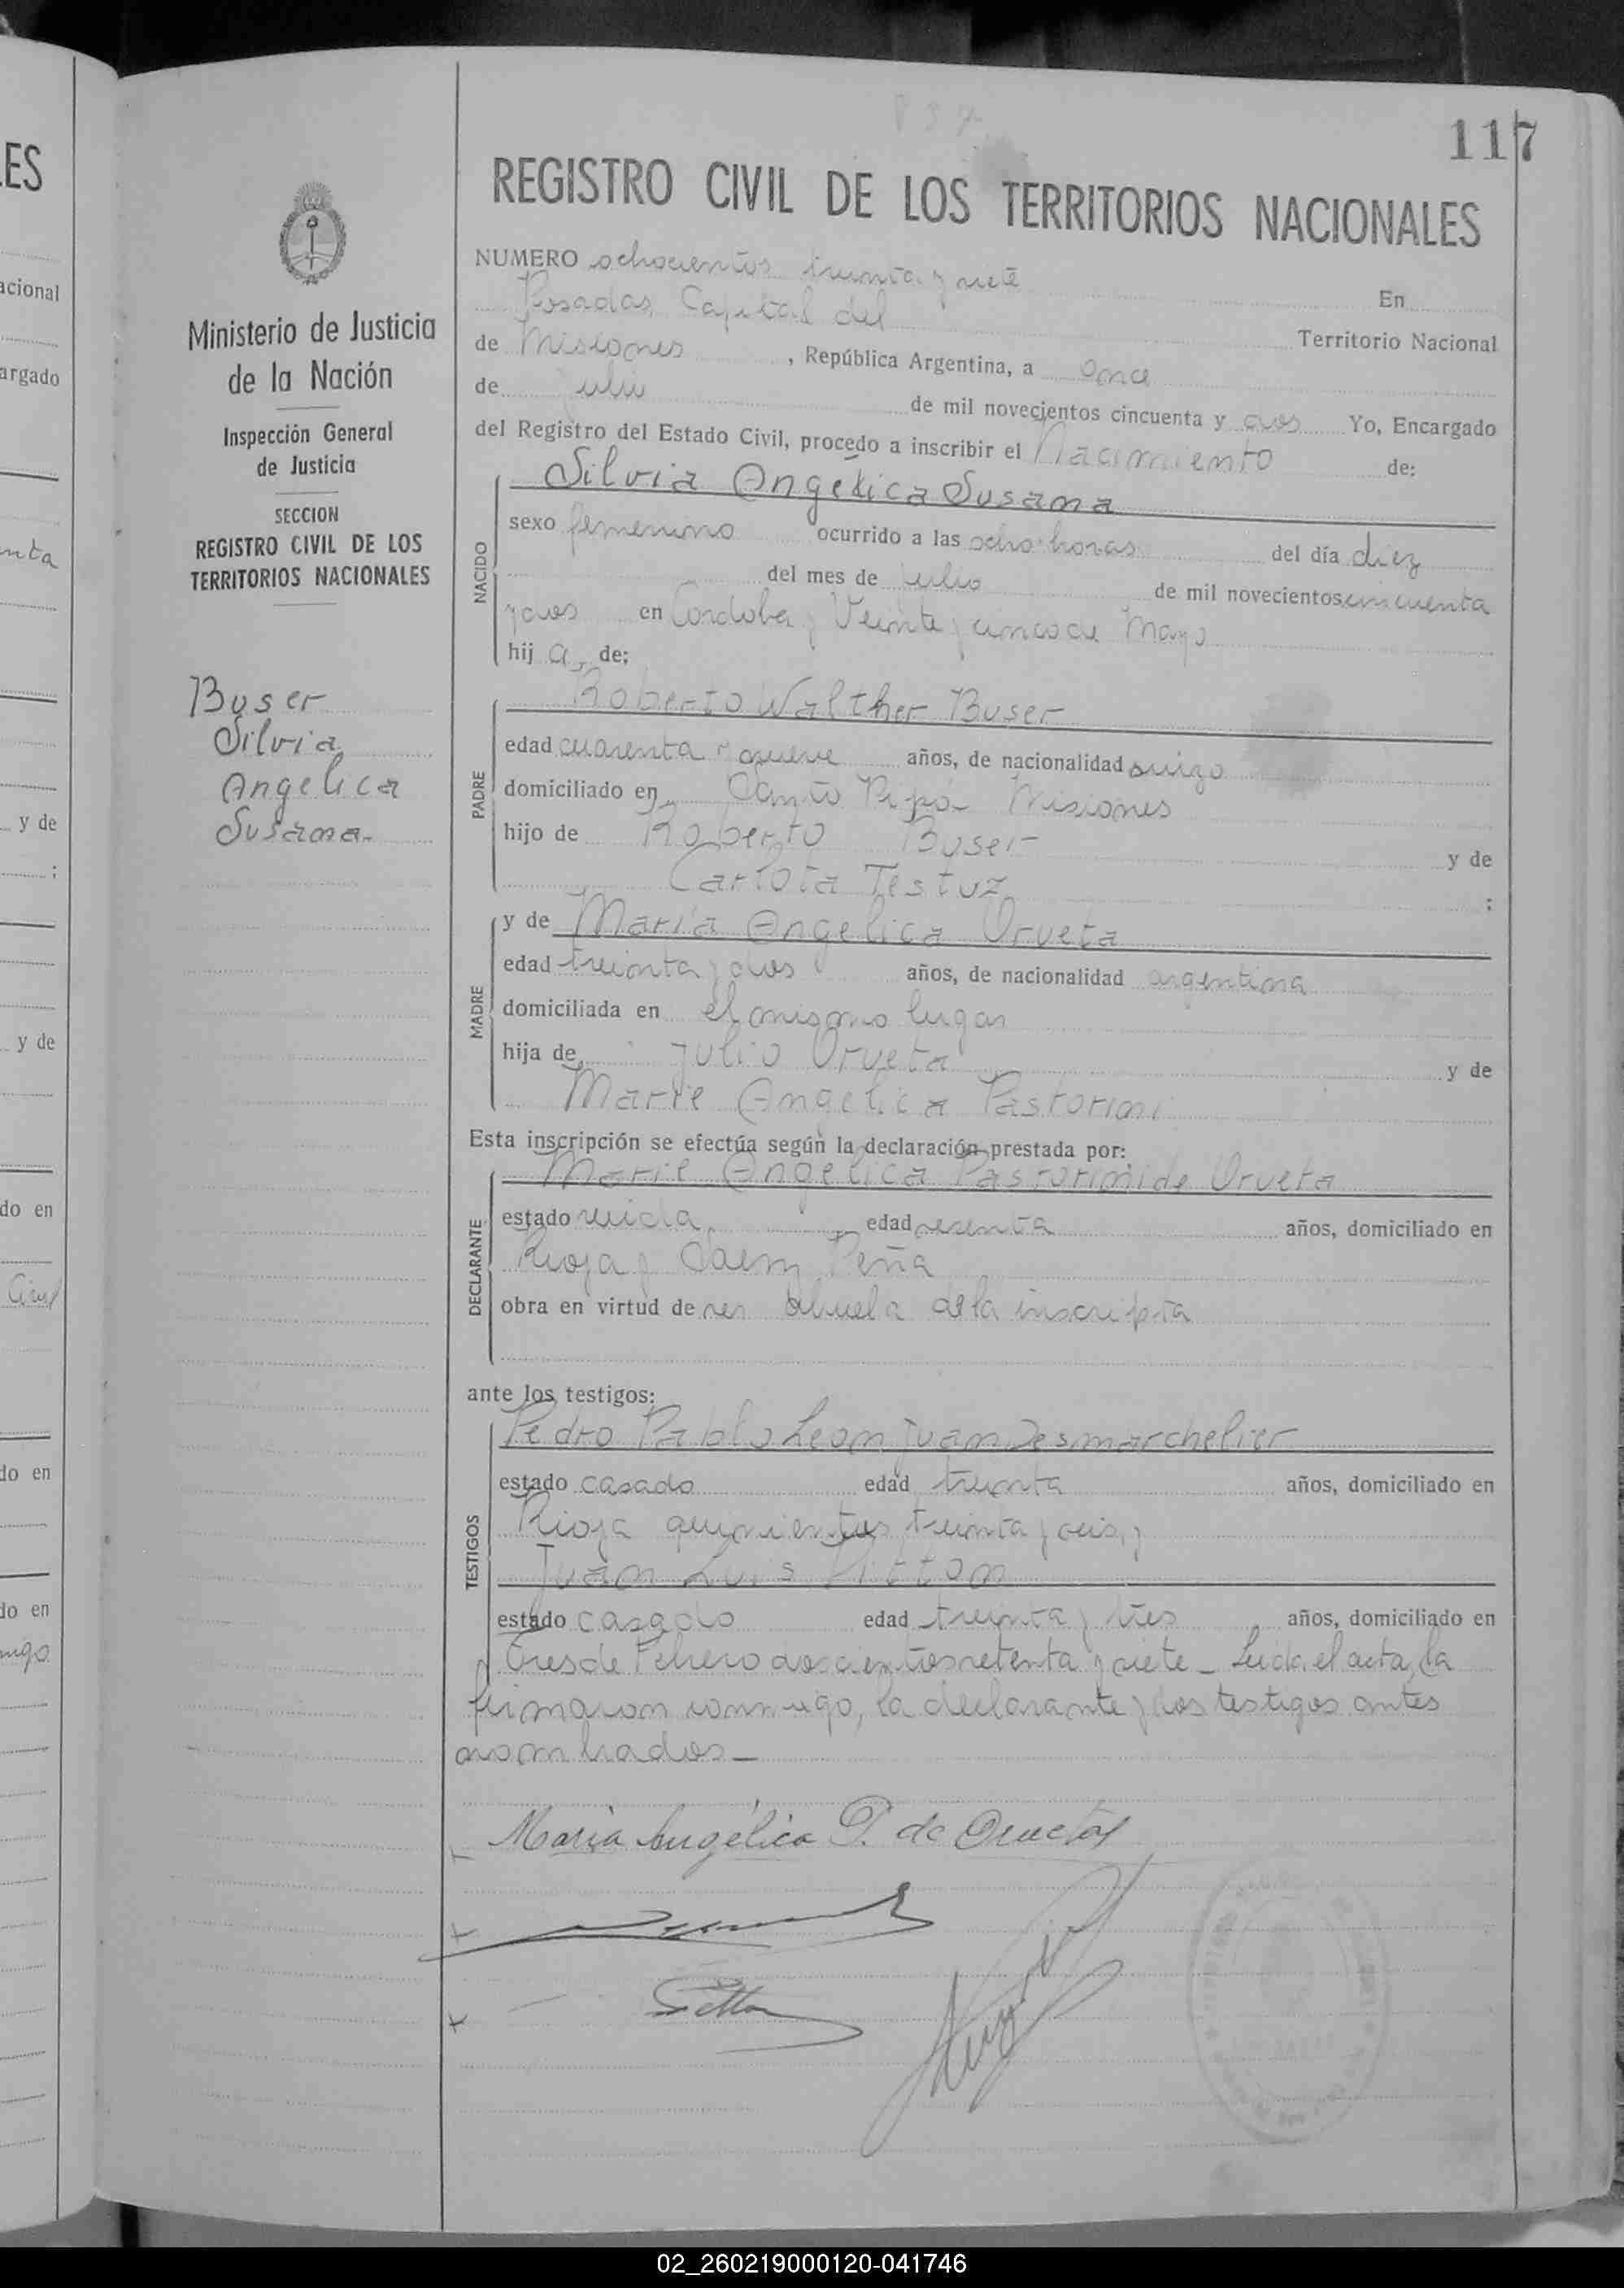 ES
acional
argado
nta
y de
;
y de
do en
Civil
do en
do en
Ministerio de Justicia
de la Nación
Inspección General
de Justicia
SECCION
REGISTRO CIVIL DE LOS
TERRITORIOS NACIONALES
Buser
Silvia
Angelica
Susana.
837
117
REGISTRO CIVIL DE LOS TERRITORIOS NACIONALES
NUMERO ochocientos treinta y siete En
Posadas, Capital del Territorio Nacional
de Misiones, República Argentina, a once
de julio de mil novecientos cincuenta y dos Yo, Encargado
del Registro del Estado Civil, procedo a inscribir el Nacimiento de:
NACIDO
Silvia Angélica Susana
sexo femenino ocurrido a las ocho horas del día diez
del mes de julio de mil novecientos cincuenta
y dos en Cordoba y Veinte y cinco de Mayo
hij a, de:
PADRE
Roberto Walther Buser
edad cuarenta y nueve años, de nacionalidad suizo
domiciliado en Santo Pipó - Misiones
hijo de Roberto Buser y de
Carlota Testuz ;
MADRE
y de María Angelica Orueta
edad treinta y dos años, de nacionalidad argentina
domiciliada en el mismo lugar
hija de Julio Orueta y de
Marie Angelica Pastorini
Esta inscripción se efectúa según la declaración prestada por:
DECLARANTE
Marie Angelica Pastorini de Orueta
estado viuda, edad sesenta años, domiciliado en
Rioja y Saenz Peña
obra en virtud de ser abuela de la inscripta
ante los testigos:
TESTIGOS
Pedro Pablo Leon Juan Desmarchelier
estado casado edad treinta años, domiciliado en
Rioja quinientos treinta y seis, y
Juan Luis Pitton
estado casado edad treinta y tres años, domiciliado en
Tres de Febrero doscientos setenta y siete - Leida el acta, la
firmaron conmigo, la declarante y los testigos antes
nombrados -
María Angélica P. de Orueta
02_260219000120-041746